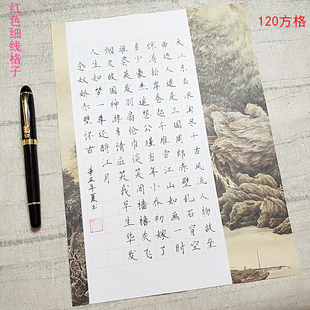 红色细线格子
120方格
大江东去浪淘尽千古风流人物故垒
西边人道是三国周郎赤壁乱石穿空
惊涛拍岸卷起千堆雪江山如画一时
多少豪杰遥想公瑾当年小乔初嫁了
雄姿英发羽扇纶巾谈笑间樯橹灰飞
烟灭故国神游多情应笑我早生华发
人生如梦一尊还酹江月
念奴娇赤壁怀古
辛丑年夏